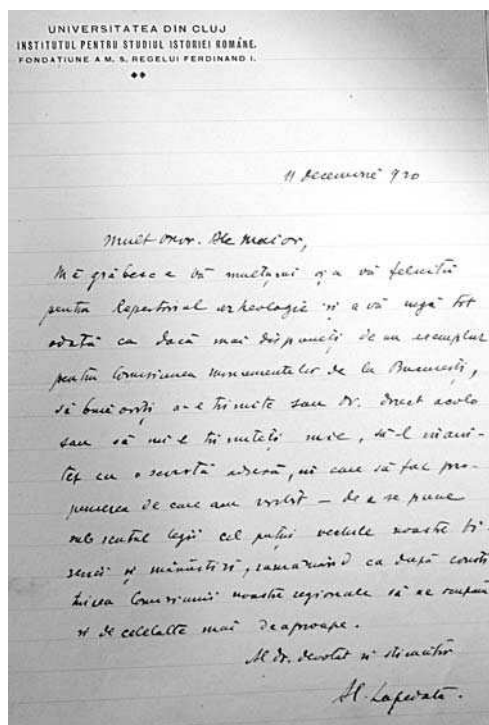 UNIVERSITATEA DIN CLUJ
INSTITUTUL PENTRU STUDIUL ISTORIEI ROMÂNE.
FONDAȚIUNE A M. S. REGELUI FERDINAND I.
11 Decemvrie 920
Mult Onor. Dle Maior,
Mă grăbesc a vă mulțumi și a vă felicita
pentru Repertorial arheologic și a vă rugà tot
odată ca dacă mai dispuneți de un esemplar
pentru Comisiunea monumentelor de la București,
să binevoiți a-l trimite sau dv. direct acolo
sau să mi-l trimiteți mie, să-l înain-
tez cu o scurtă adresă, în care să fac pro-
punerea de care am vorbit — de a se pune
sub scutul legii cel puțin vechile noastre bi-
serici și mănăstiri, rămânând ca după consti
tuirea Comisiunii noastre regionale să ne ocupăm
și de celelalte mai deaproape.
Al dv. devotat și stimător
Al. Lapedatu.